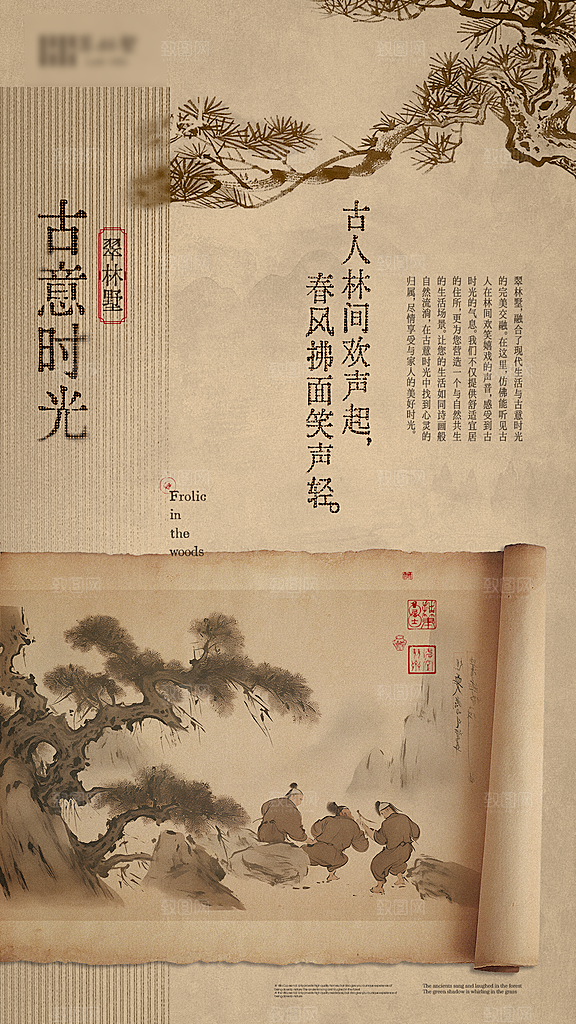 古意时光
翠林墅
古人林间欢声起，
春风拂面笑声轻。
翠林墅，融合了现代生活与古意时光
的完美交融。在这里，仿佛能听见古
人在林间欢笑嬉戏的声音，感受到古
时光的气息。我们不仅提供舒适宜居
的住所，更为您营造一个与自然共生
的生活场景。让您的生活如同诗画般
自然流淌，在古意时光中找到心灵的
归属，尽情享受与家人的美好时光。
Frolic
in
the
woods
The ancients sang and laughed in the forest
The green shadow is whirling in the grass